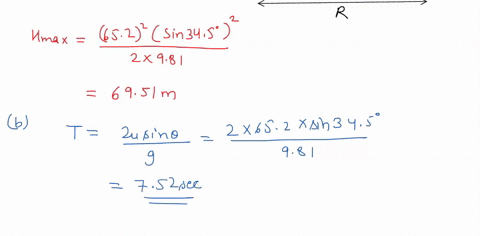 R
Hmax = (65.2)² (sin34.5°)² / 2 × 9.81
= 69.51 m
(b) T = 2u sinθ / g = 2 × 65.2 × sin34.5° / 9.81
= 7.52 sec